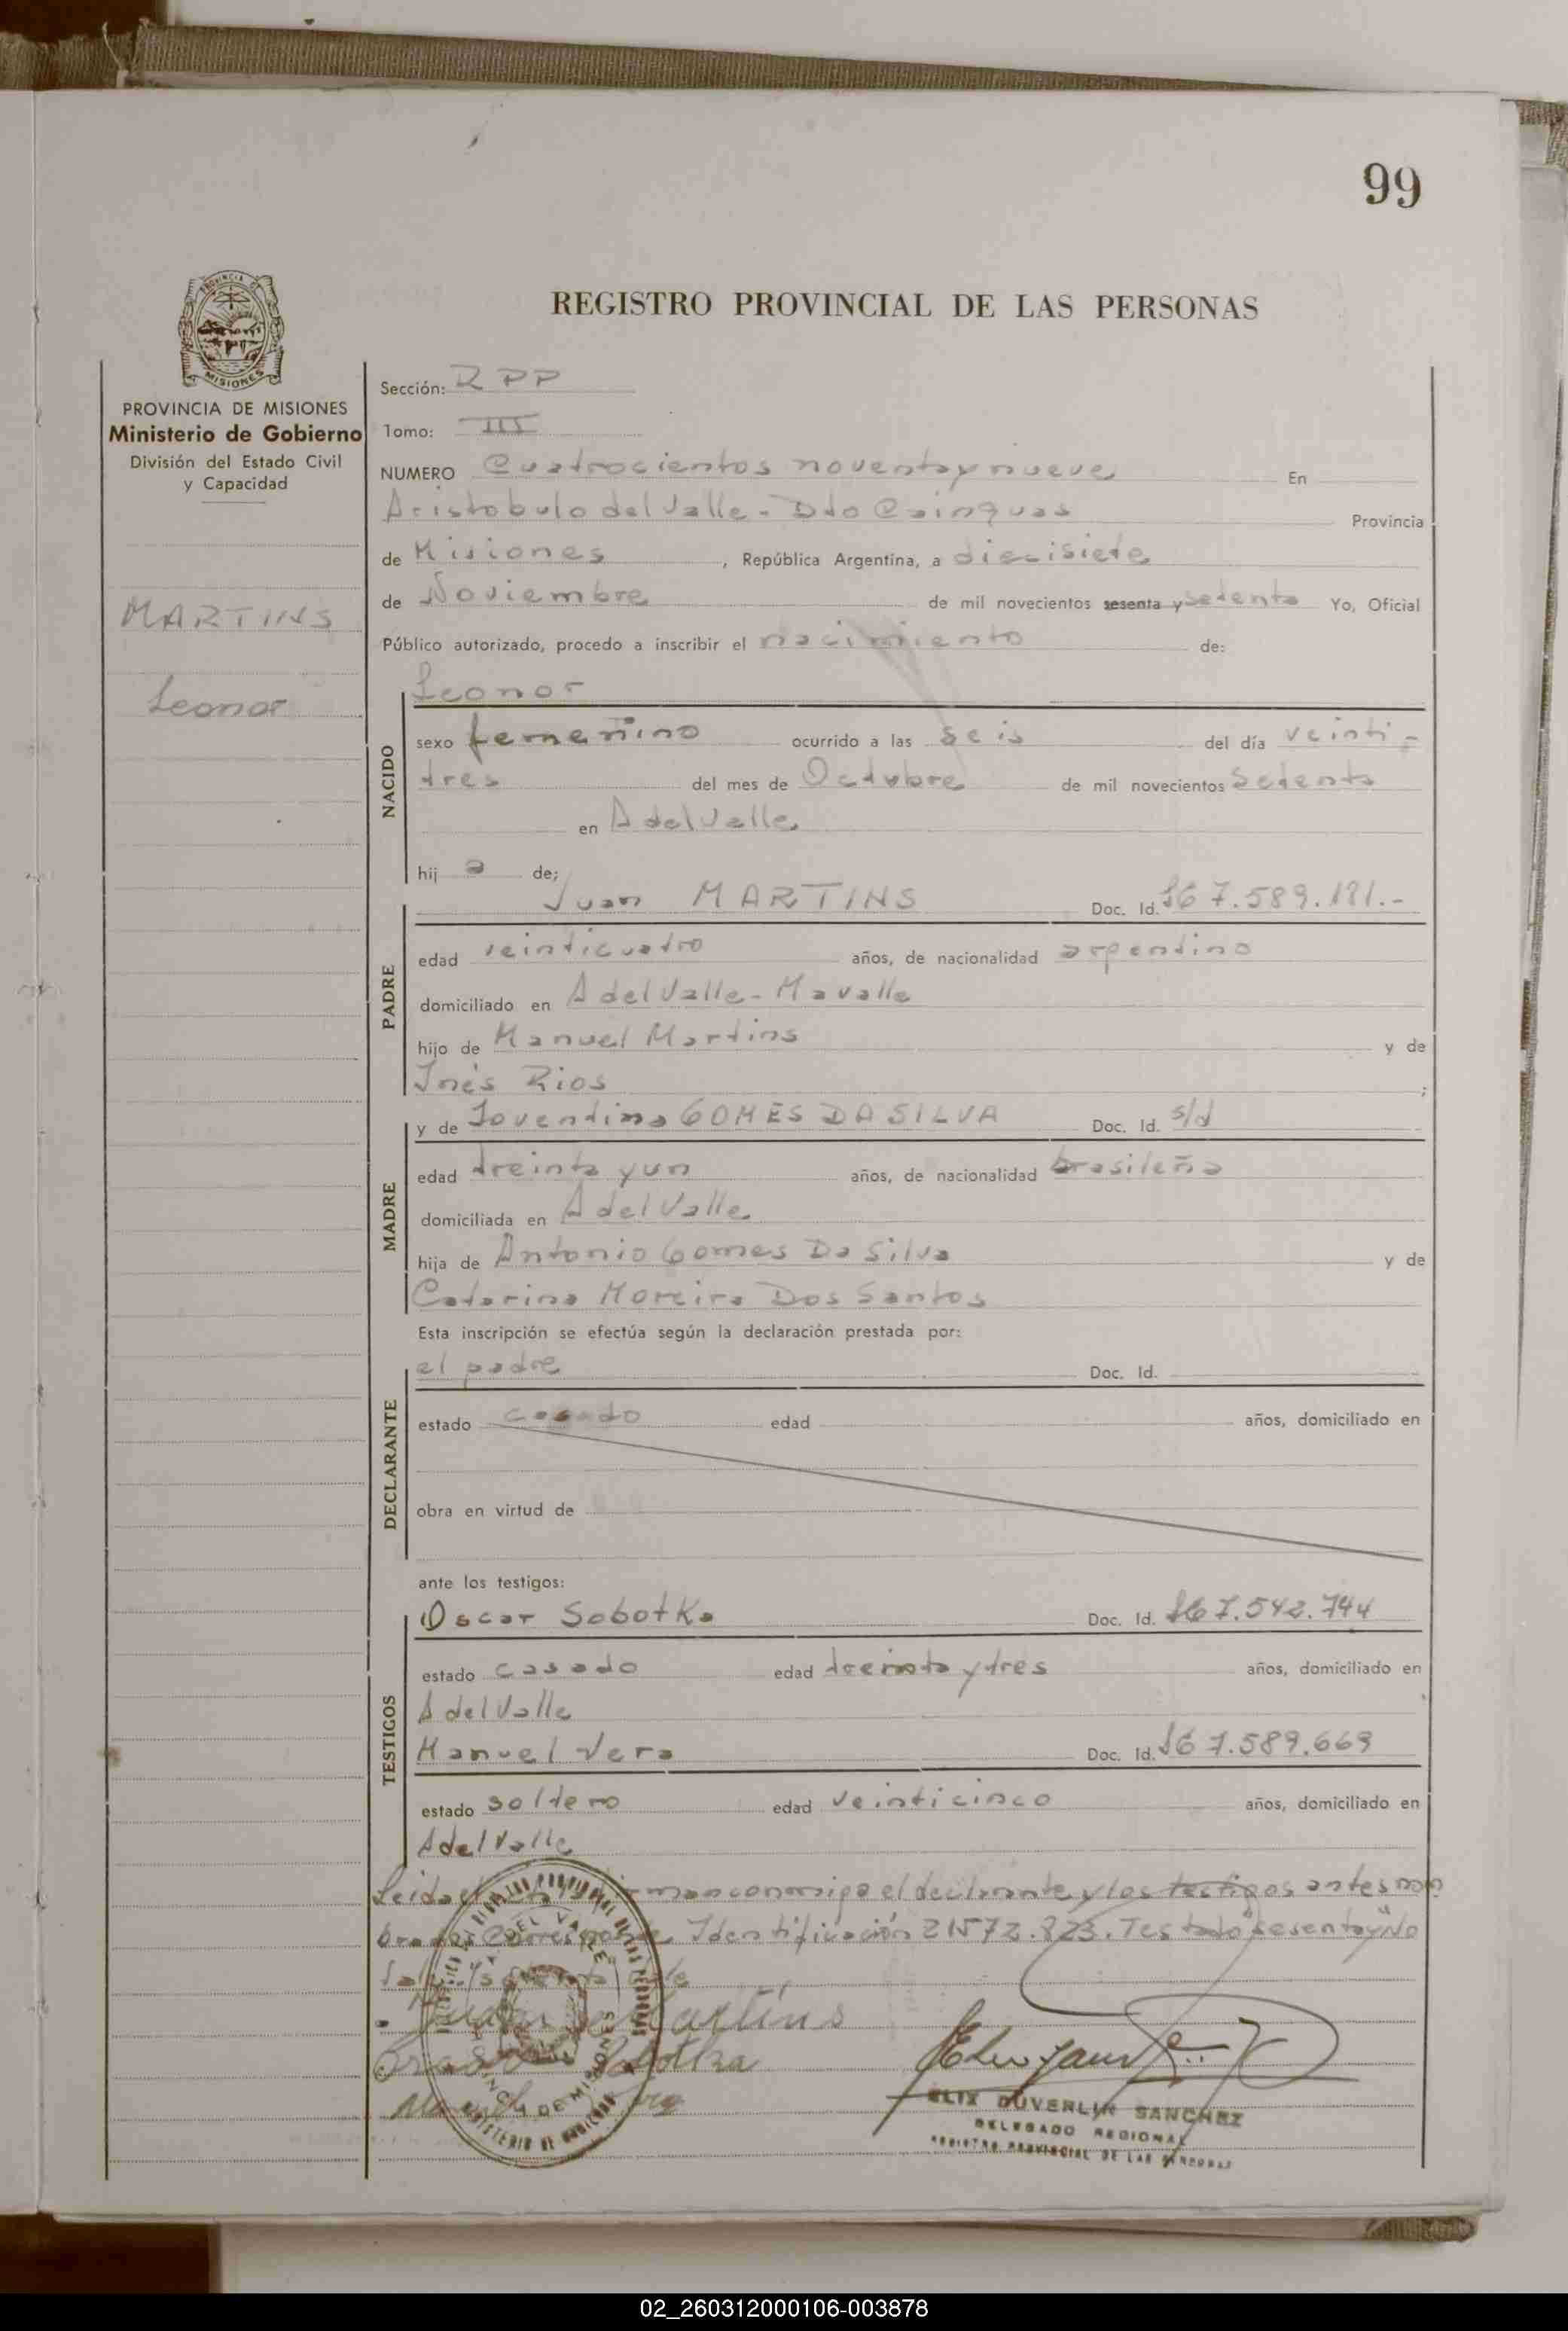 99
REGISTRO PROVINCIAL DE LAS PERSONAS
PROVINCIA DE MISIONES
Ministerio de Gobierno
División del Estado Civil
y Capacidad
MARTINS
Leonor
Sección: RPP
Tomo: III
NUMERO Cuatrocientos noventa y nueve En
Aristobulo del Valle - Dto Cainguas Provincia
de Misiones, República Argentina, a diecisiete
de Noviembre de mil novecientos sesenta y setenta Yo, Oficial
Público autorizado, procedo a inscribir el nacimiento de:
Leonor
NACIDO
sexo femenino ocurrido a las seis del día veinti-
tres del mes de Octubre de mil novecientos setenta
en A del Valle
hij a de;
Juan MARTINS Doc. Id. 7.589.181.-
PADRE
edad veinticuatro años, de nacionalidad argentino
domiciliado en A del Valle - Mavalle
hijo de Manuel Martins y de
Inés Rios ;
y de Joventina GOMES DA SILVA Doc. Id. s/d
MADRE
edad treinta y un años, de nacionalidad brasileña
domiciliada en A del Valle
hija de Antonio Gomes Da Silva y de
Catarina Moreira Dos Santos
Esta inscripción se efectúa según la declaración prestada por:
el padre Doc. Id.
DECLARANTE
estado casado edad años, domiciliado en
obra en virtud de
ante los testigos:
Oscar Sobotka Doc. Id. 7.542.744
TESTIGOS
estado casado edad treinta y tres años, domiciliado en
A del Valle
Manuel Vera Doc. Id. 7.589.669
estado soltero edad veinticinco años, domiciliado en
A del Valle
Leida el conmigo el declarante y los testigos antes nom
brados Identificación 21572.823. Testado "sesenta y" No
Juan Martins
Sobotka
ELIX DUVERLIN SANCHEZ
DELEGADO REGIONAL
REGISTRO PROVINCIAL DE LAS PERSONAS
02_260312000106-003878